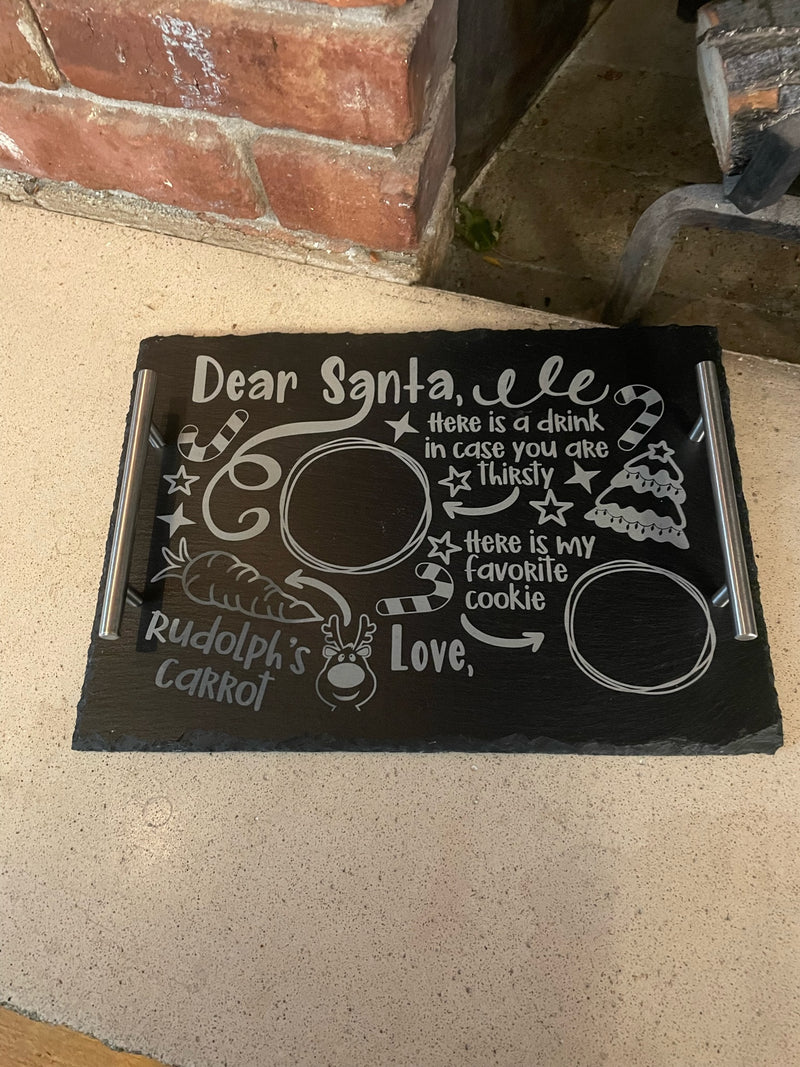 Dear Santa,
Here is a drink
in case you are
thirsty
Here is my
favorite
cookie
Rudolph's
carrot
Love,